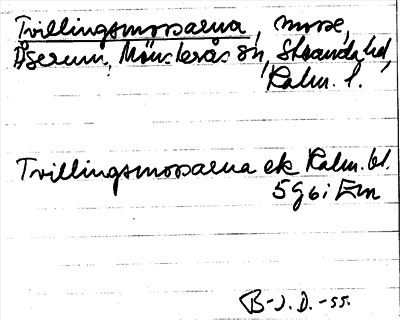 Tvillingsmossarna, mosse,
Åserum, Mönsterås sn, Stranda hd,
Kalm. l.
Tvillingsmossarna ek Kalm. bl.
5 G 6 i Em
B-J. D. -55.